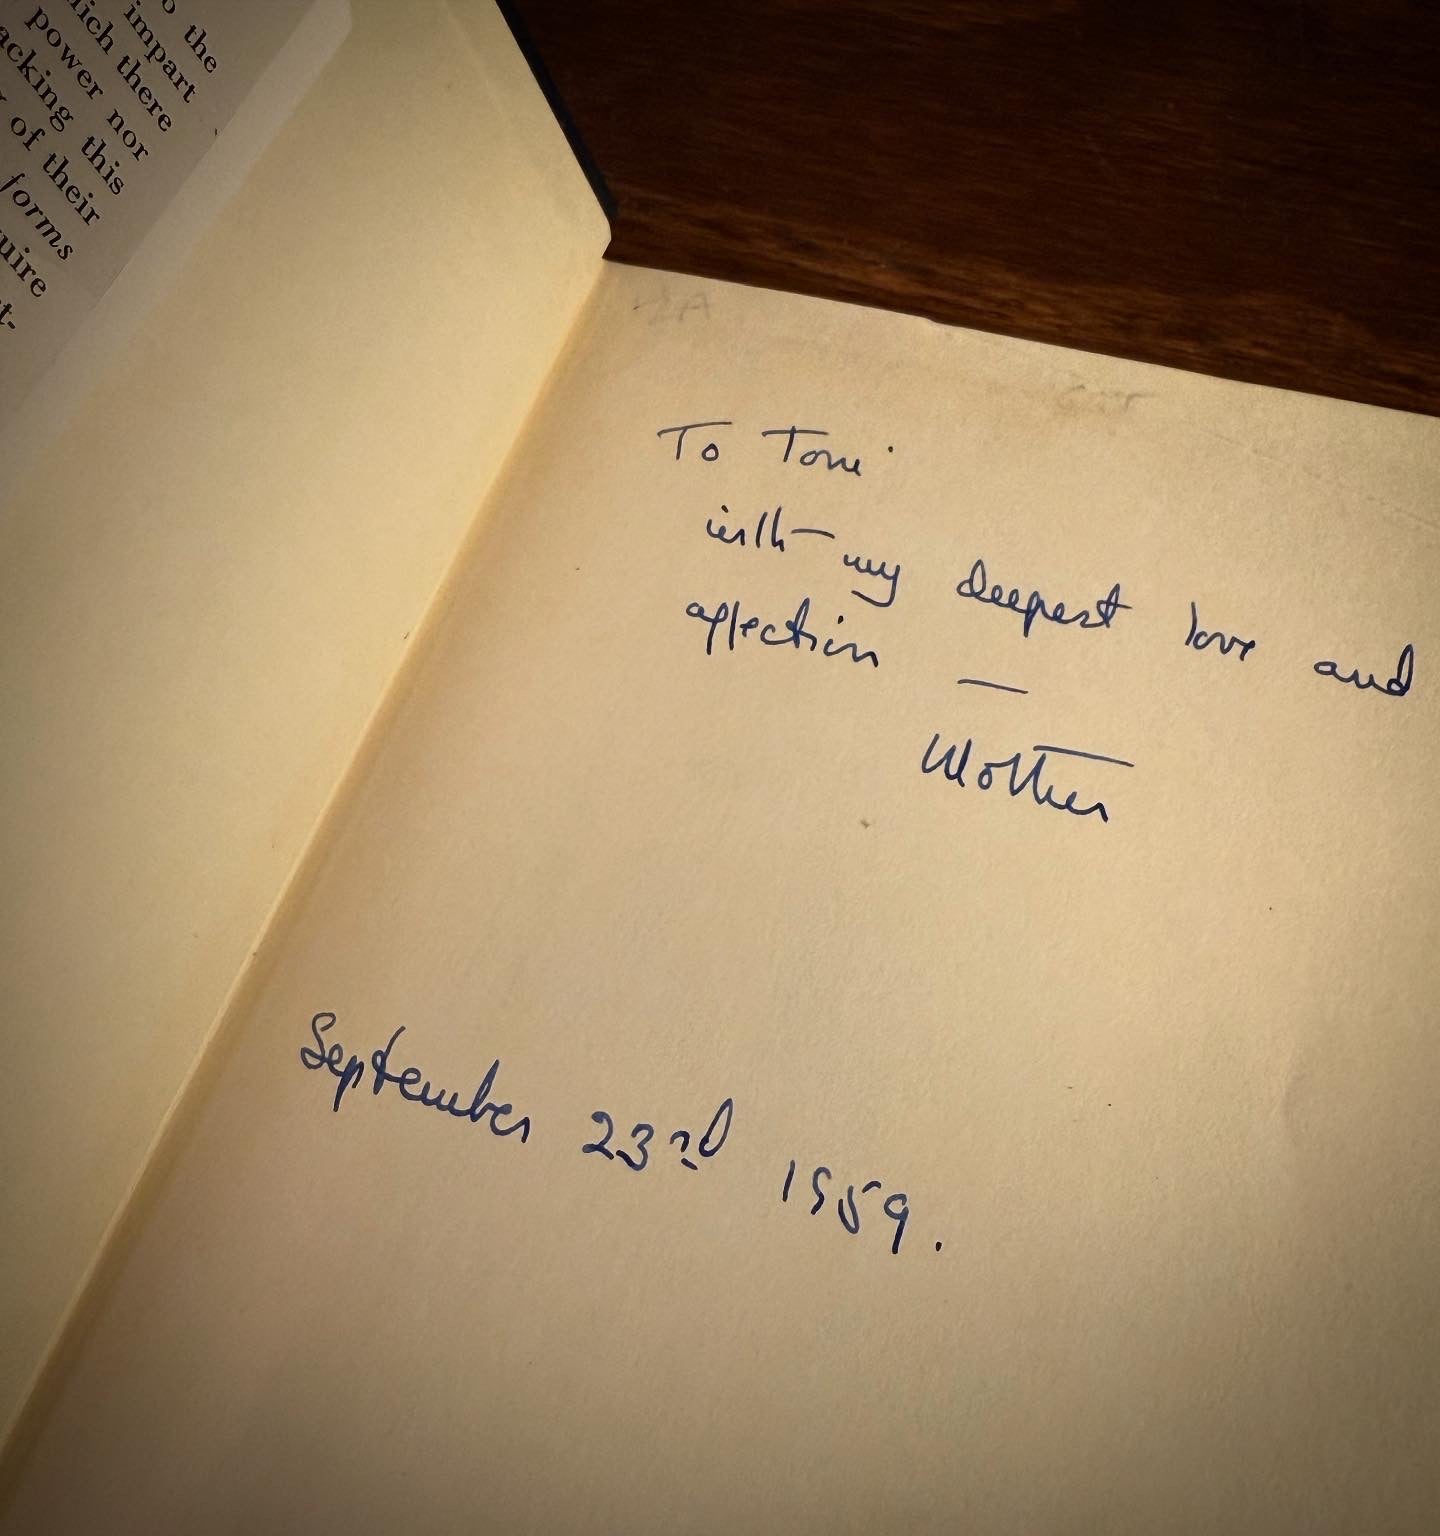 o the
impart
ich there
power nor
acking this
of their
forms
uire
t-
To Toni
with my deepest love and
affection —
Mother
September 23rd 1959.